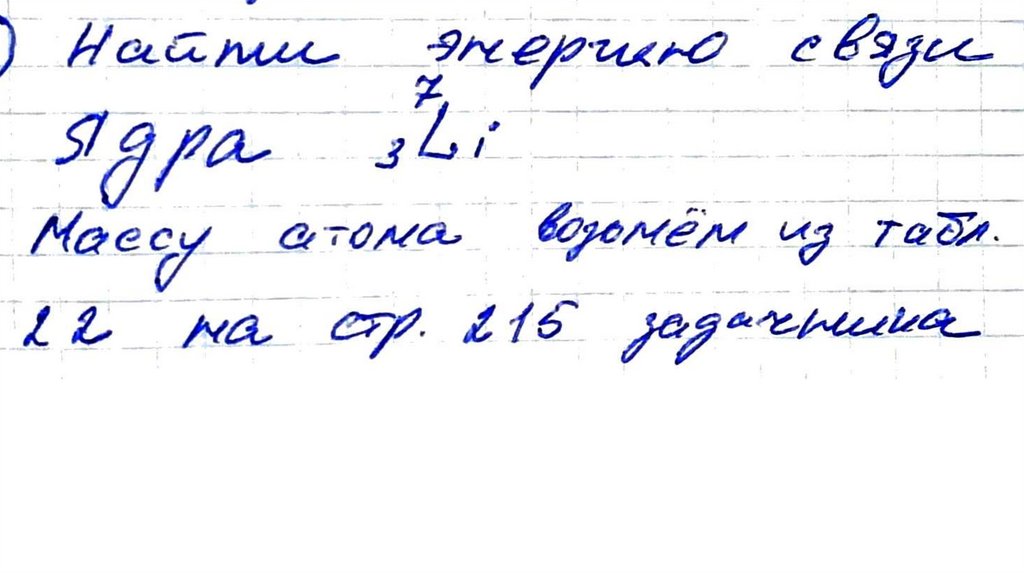 ) Найти энергию связи
Ядра ⁷₃Li
Массу атома возьмём из табл.
22 на стр. 215 задачника